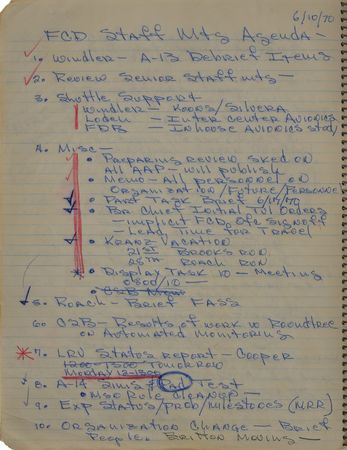 6/10/70
FCD Staff Mtg Agenda -
1. Windler - A-13 Debrief Items
2. Review Senior Staff mtg -
3. Shuttle Support
Windler - Koons/Silvera
Loden - Inter Center Avionics
FDB - Inhouse Avionics study
4. Misc -
• Preparing review sked on
All AAP - will publish
• Memo - All personnel on
Organization/Future/Personnel
• Part Task Brief 6/15/70
• Br. Chief Initial TVL Orders
- implicit FCD, Ofc signoff
- Lead time for Travel
• Kranz Vacation
21st Brooks Run
28th Roach Run
• Display Task 10 - Meeting
0800/10 -
• C2B Mgmt
5. Roach - Brief FASS
6. C2B - Results of work w Roundtree
on Automated Monitoring
7. LRV Status report - Cooper
1200-1300 Tomorrow
Monday 12-1300
8. A-14 Sims & Pad Test
• Msn Rule Cleanup -
9. Exp Status/Prob/Milestones (MRR)
10. Organization Change - Brief
People. Britton Moving -